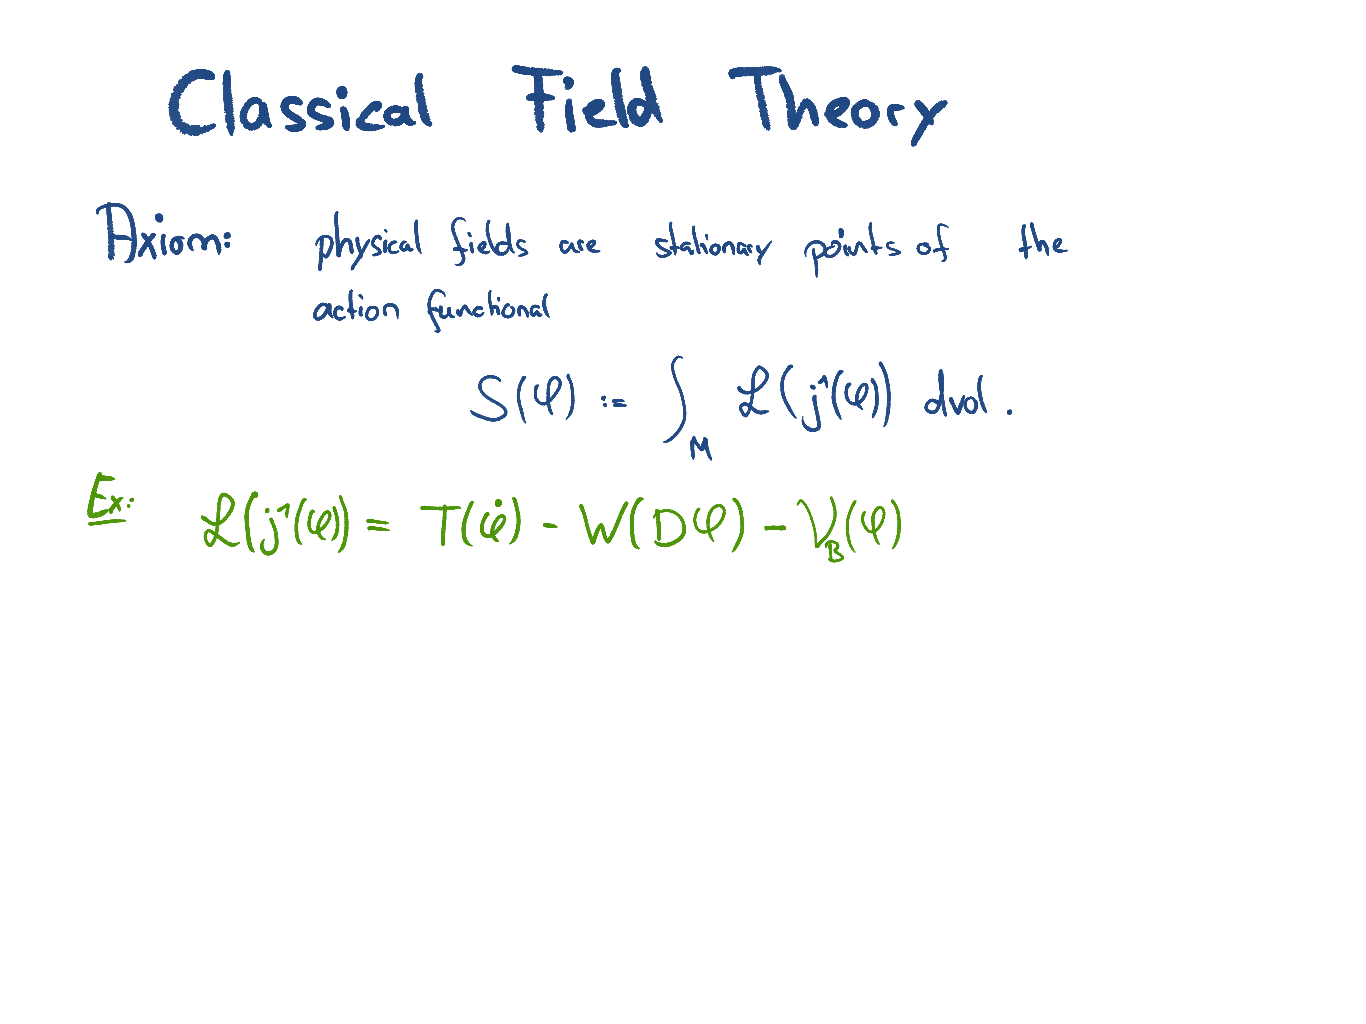 Classical Field Theory
Axiom: physical fields are stationary points of the
action functional
S(φ) := ∫_M ℒ(j¹(φ)) dvol.
Ex: ℒ(j¹(φ)) = T(φ̇) - W(Dφ) - V_B(φ)